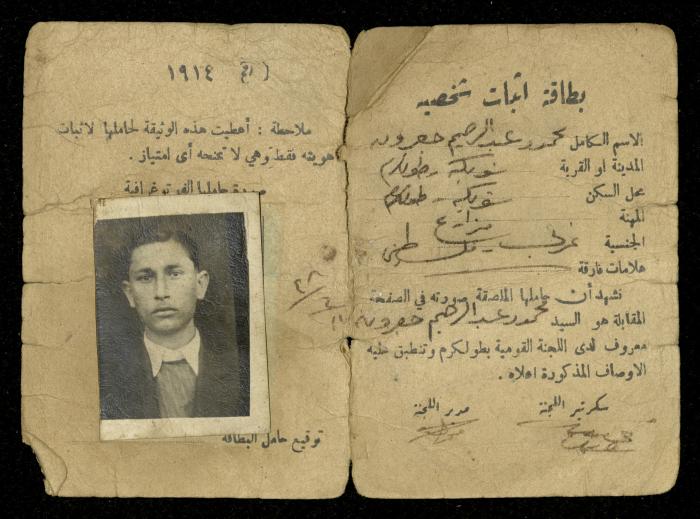 بطاقة اثبات شخصية
الاسم الكامل محمود عبد الرحيم
المدينة او القرية شويكه - طولكرم
محل السكن شويكه - طولكرم
المهنة مزارع
الجنسية عربي
علامات فارقة
نشهد أن حاملها الملصقة صورته في الصفحة
المقابلة هو السيد محمود عبد الرحيم
معروف لدى اللجنة القومية بطولكرم وتنطبق عليه
الاوصاف المذكورة اعلاه .
سكرتير اللجنة
مدير اللجنة
( رقم ١٩١٤
ملاحظة : أعطيت هذه الوثيقة لحاملها لاثبات
هويته فقط وهي لا تمنحه أى امتياز .
صورة حاملها الفوتوغرافية
توقيع حامل البطاقة